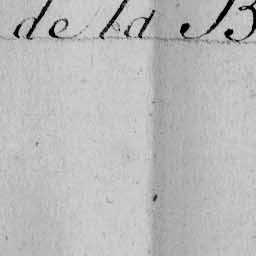 de la B